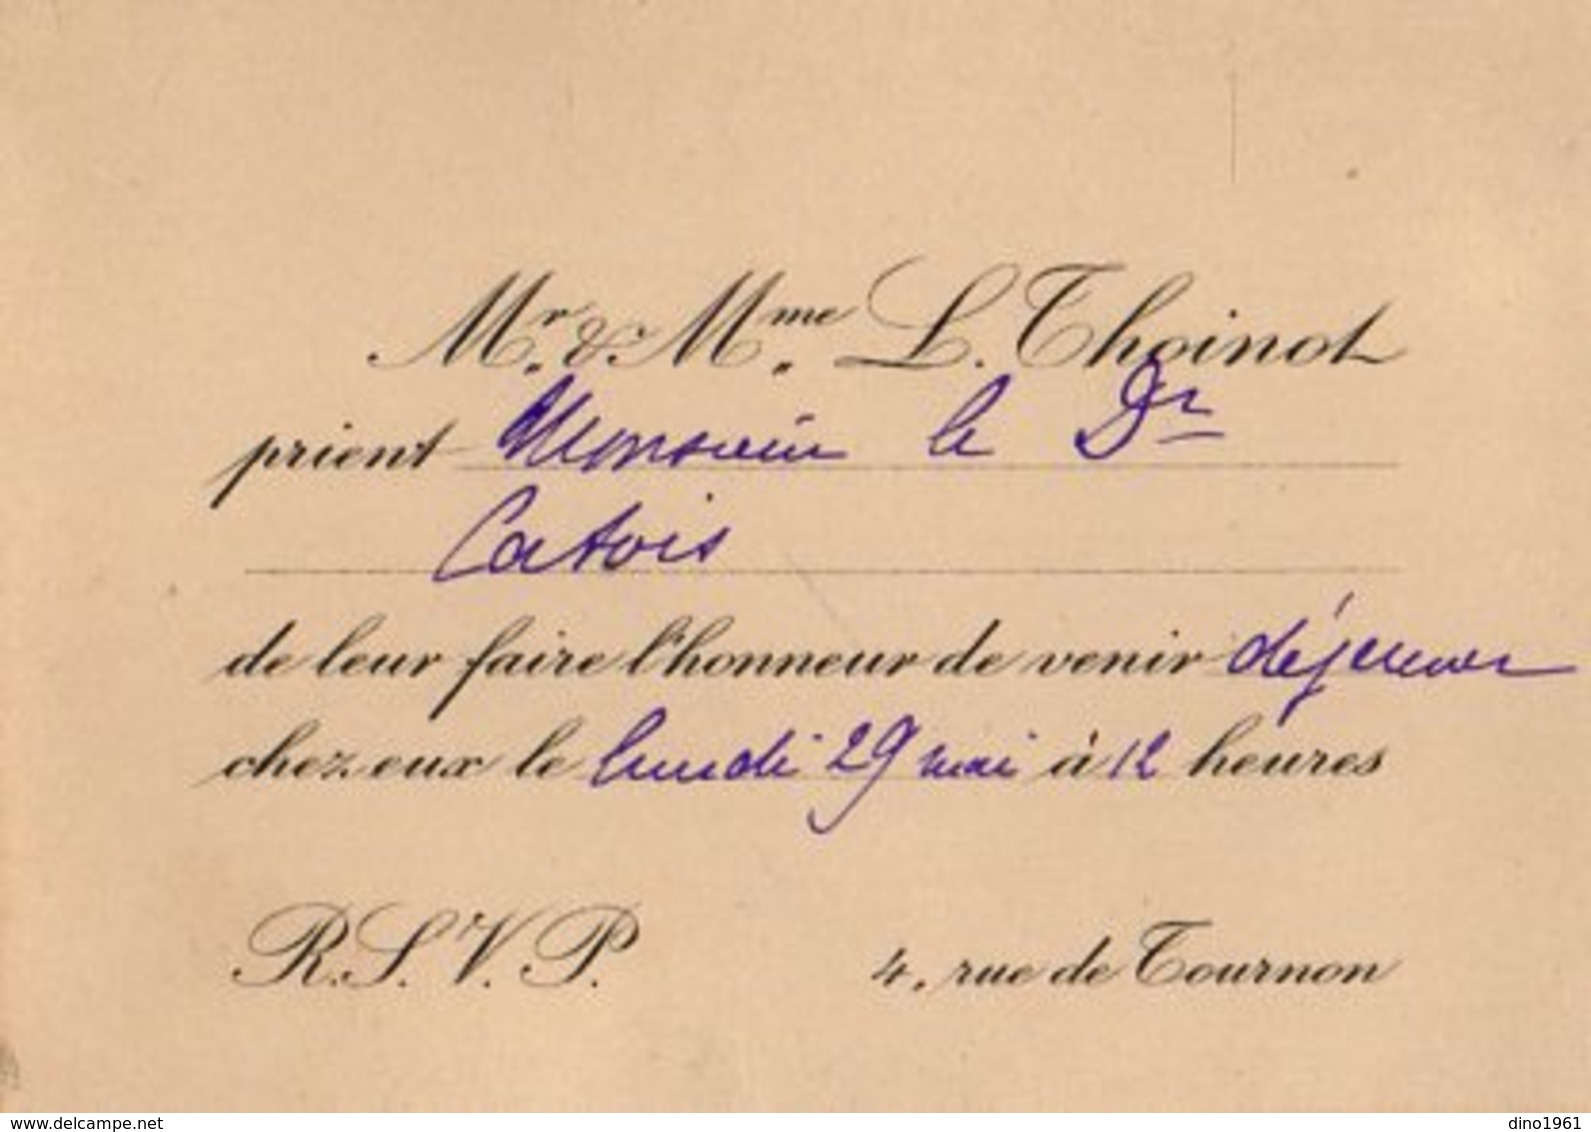 Mr. & Mme. L. Thoinot
prient Monsieur le Dr
Catois
de leur faire l'honneur de venir déjeuner
chez eux le lundi 29 mai à 12 heures
R.S.V.P. 4, rue de Tournon
www.delcampe.net dino1961